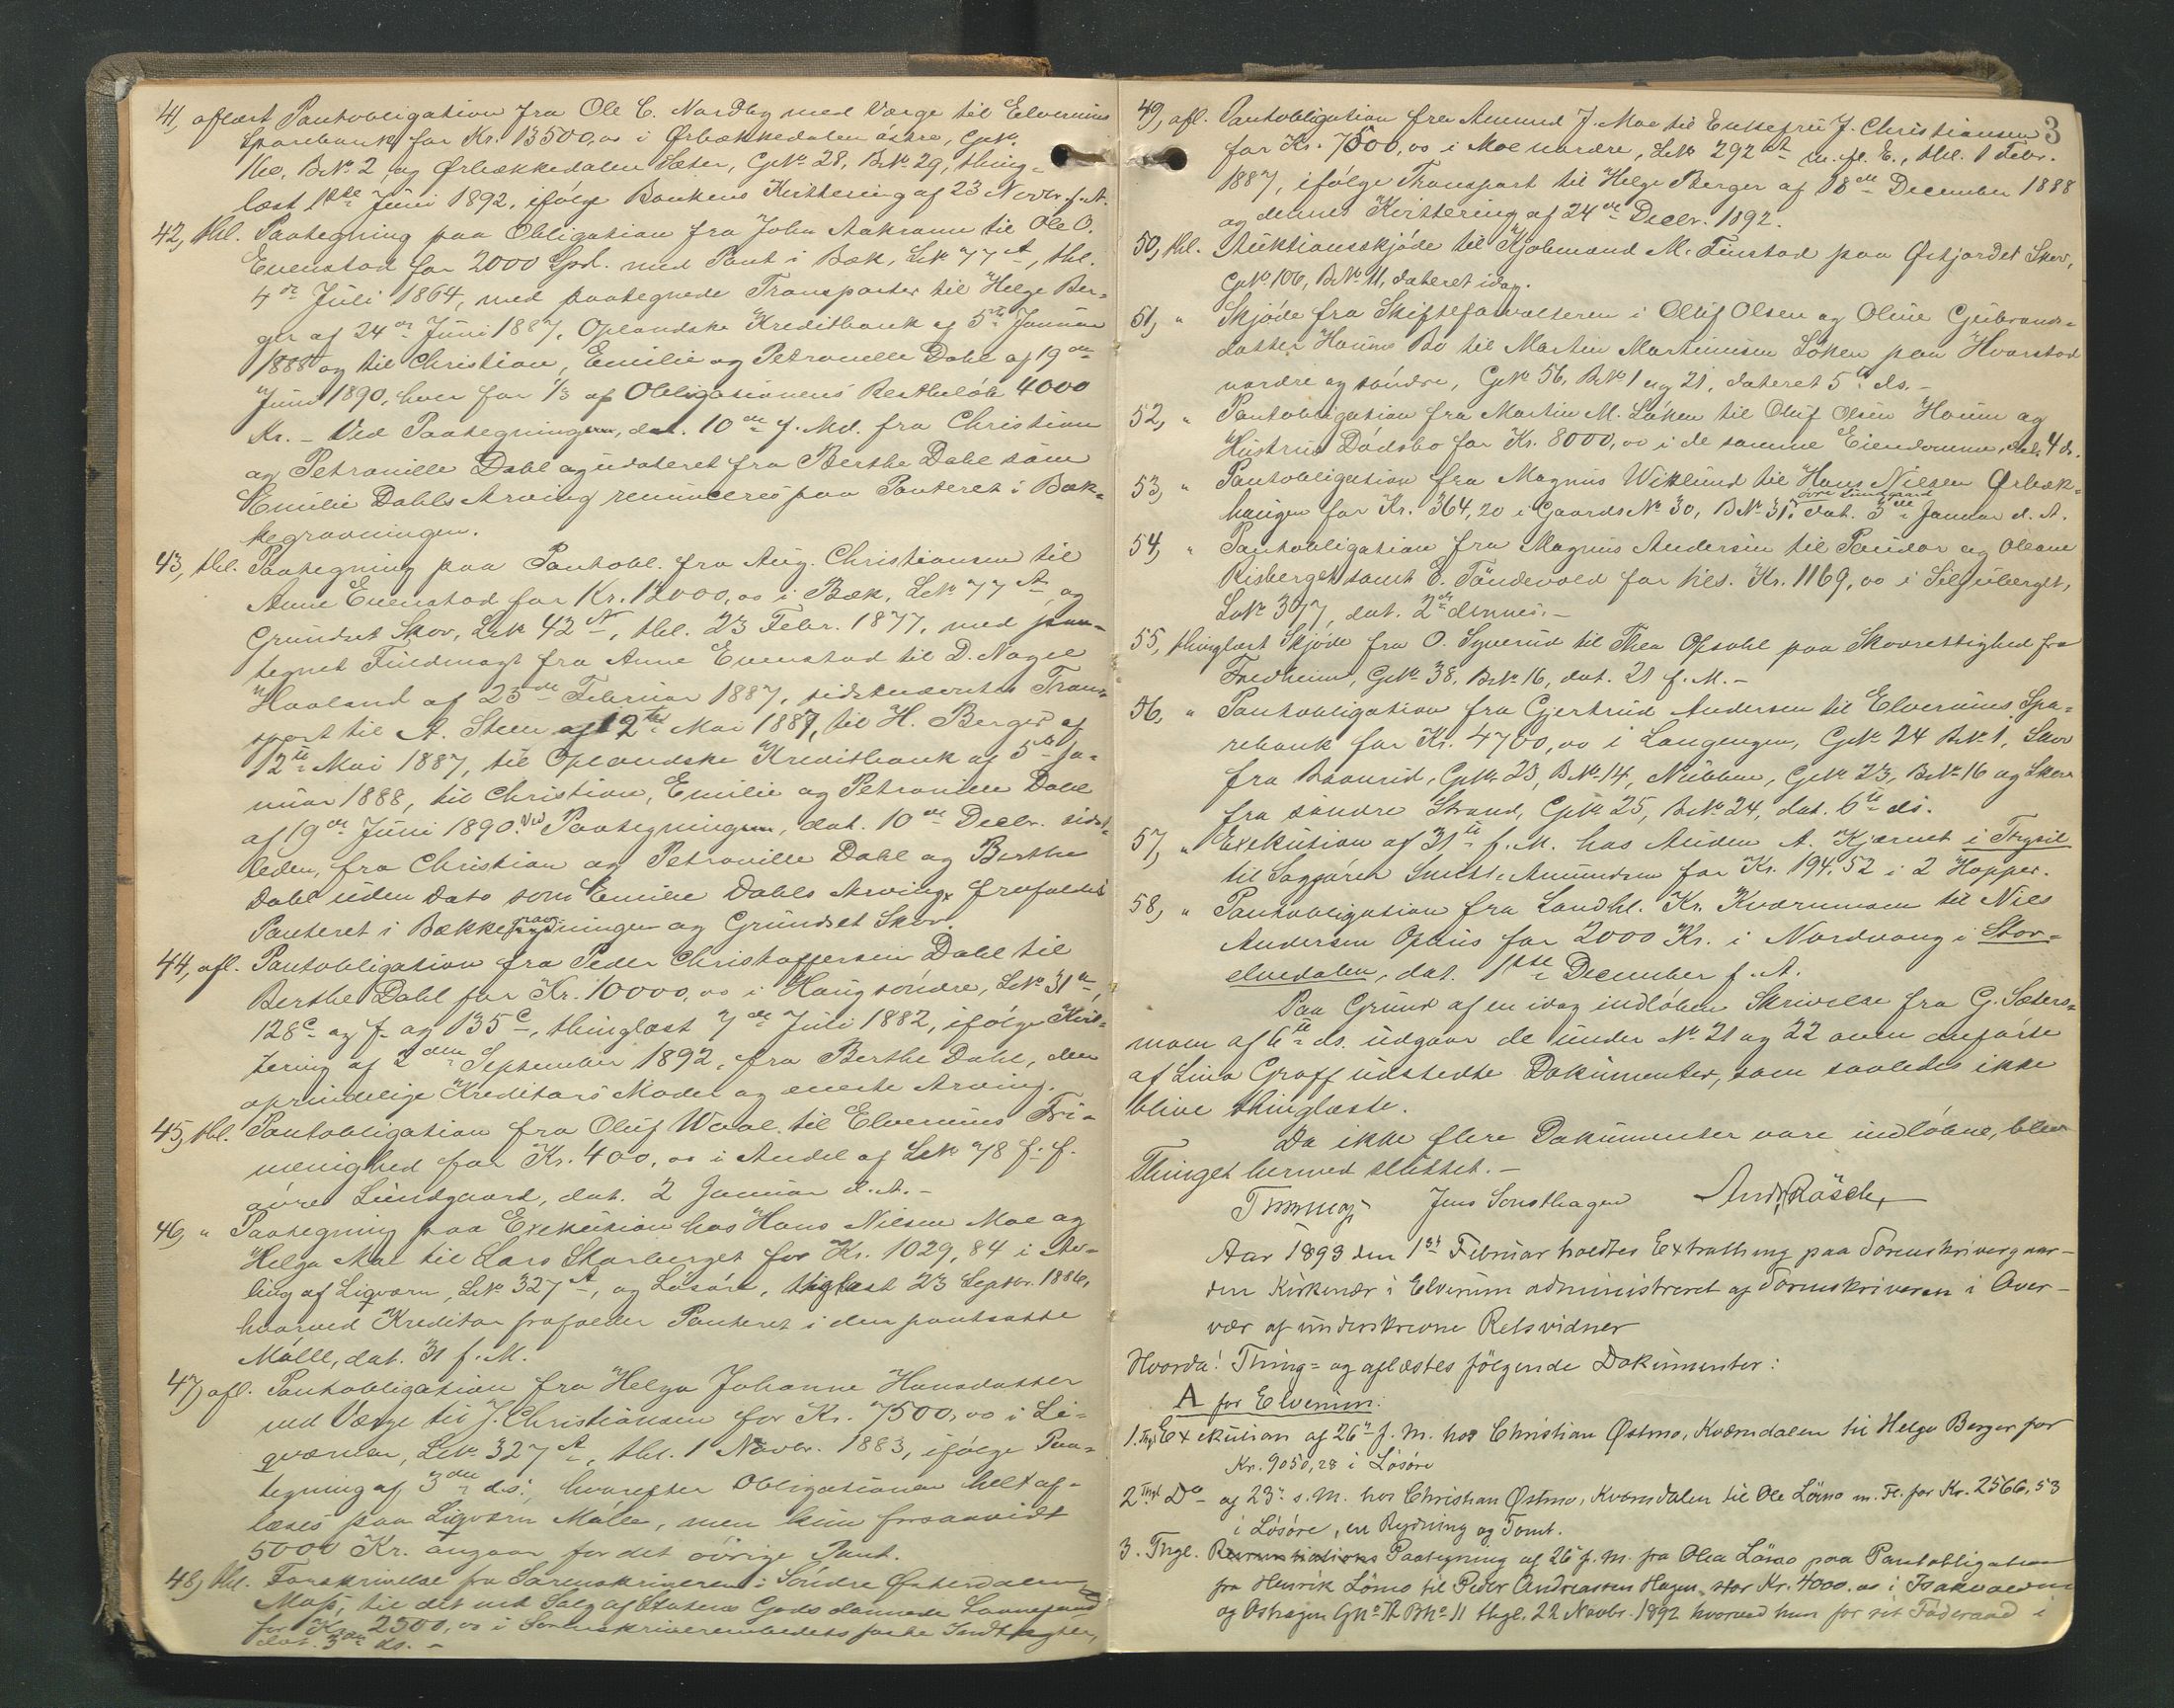 41, aflæst Pantobligation fra Ole C. Nordby med Værge til Elverums
Sparebank for Kr. 13500,00 i Ørbækkedalen østre, G№
160, B№ 2 og Ørbækkedalen Sæter, G№ 28, B№ 29, thing-
læst 1ste Juni 1892, ifølge Bankens Kvittering af 23 Novbr. f. A.
42, thl. Paategning paa Obligation fra John Aakrann til Ole O.
Evenstad for 2000 Spd. med Pant i Bæk, L№ 77 A, thl.
4de Juli 1864, med paategnede Transporter til Helge Ber-
ger af 24de Juni 1887, Oplandske Kreditbank af 5te Januar
1888 og til Christian, Emilie og Petronelle Dahl af 19de
Juni 1890, hver for 1/3 af Obligationens Restbeløb 4000
Kr. – Ved Paategningen, dat. 10de f. Md. fra Christian
og Petronille Dahl og udateret fra Berthe Dahl som
Emilie Dahls Arving renunceres paa Panteret i Bæk-
kegravningen.
43, thl. Paategning paa Pantobl. fra Aug. Christiansen til
Anne Evenstad for Kr. 12000,00 i Bæk, L№ 77 A, og
Grundset Skov, L№ 42 N, thl. 23 Febr. 1877, med paa-
tegnet Fuldmagt fra Anne Evenstad til D. Nagel
Haaland af 25de Februar 1887, sidstnævntes Tran-
sport til A. Steen af 2den Mai 1887, til H. Berger af
12te Mai 1887, til Oplandske Kreditbank af 5te Ja-
nuar 1888, til Christian, Emilie og Petronille Dahl
af 19de Juni 1890. Ved Paategningen, dat. 10de Decbr. sidst-
leden, fra Christian og Petronille Dahl og Berthe
Dahl uden Dato som Emilie Dahls Arving frafaldes
Panteret i Bækkegravningen og Grundset Skov.
44, afl. Pantobligation fra Peder Christoffersen Dahl til
Berthe Dahl for Kr. 10000,00 i Haug søndre, L№ 31 a,
128 c og f og 135 c, thinglæst 7de Juli 1882, ifølge Kvit-
tering af 2den September 1892, fra Berthe Dahl, den
oprindelige Kreditors Moder og eneste Arving.
45, thl. Pantobligation fra Oluf Waal til Elverums Fri-
menighed for Kr. 400,00 i Andel af L№ 78 f. f.
øvre Lundgaard, dat. 2 Januar d. A. –
46, " Paategning paa Exekution hos Hans Nilsen Moe og
Helga Moe til Lars Skarberget for Kr. 1029,84 i Av-
ling af Liqværn, L№ 327 A, og Løsøre, thglæst 23 Septbr. 1886,
hvorved Kreditor frafalder Panteret i den pantsatte
Mølle, dat. 31 f. M.
47, afl. Pantobligation fra Helga Johanne Hansdatter
med Værge til J. Christiansen for Kr. 7500,00 i Li-
qværnen, L№ 327 A, thl. 1 Novbr. 1883, ifølge Paa-
tegning af 3die ds., hvorefter Obligationen helt af-
læses paa Liqværn Mølle, men kun forsaavidt
5000 Kr. angaar for det øvrige Pant.
48, thl. Forskrivelse fra Sorenskriveren i Søndre Østerdalen
Mass, til det ved Salg af Statens Gods dannede Laanefond
for Kr. 2500,00 i Sorenskriverembedets faste Indtægter,
dat. 3die ds. –
3
49, afl. Pantobligation fra Amund J. Moe til Enkefru J. Christiansen
for Kr. 7500,00 i Moe nordre, L№ 292 A m. fl. E., thl. 1 Febr.
1887, ifølge Transport til Helge Berger af 18de December 1888
og dennes Kvittering af 24de Decbr. 1892.
50, thl. Auktionsskjøde til Kjøbmand M. Finstad paa Østjordet Skov,
G№ 106, B№ 11, dateret idag.
51, " Skjøde fra Skifteforvalteren i Oluf Olsen og Oline Gulbrands-
datter Houms Bo til Martin Martinusen Løken paa Hvarstad
nordre og søndre, G№ 56, B№ 1 og 21, dateret 5te ds. –
52, " Pantobligation fra Martin M. Løken til Oluf Olsen Houm og
Hustrus Dødsbo for Kr. 8000,00 i de samme Eiendomme, dat. 4 ds.
53, " Pantobligation fra Magnus Wiklund til Hans Nilsen Ørbæk-
haugen for Kr. 364,20 i Gaards № 30, B№ 31, øvre Lundgaard dat. 3die Januar d. A.
54, " Pantobligation fra Magnus Andersen til Peder og Oleane
Risberget samt E. Tøndevold for tils. Kr. 1169,00 i Siljuberget,
L№ 377, dat. 2den dennes. –
55, thinglæst Skjøde fra O. Syverud til Thea Opsahl paa Skovrettighed fra
Fredheim, G№ 38, B№ 16, dat. 21 f. M. –
56, " Pantobligation fra Gjertrud Andersen til Elverums Spa-
rebank for Kr. 4700,00 i Langengen, G№ 24 B№ 1, Skov
fra Braarud, G№ 23, B№ 14, Nubben, G№ 23, B№ 16 og Skov
fra søndre Strand, G№ 25, B№ 24, dat. 6te ds.
57, " Exekution af 31te f. M. hos Auden A. Kjærnet i Trysil
til Sagfører Smith-Amundsen for Kr. 194,52 i 2 Hopper.
58, " Pantobligation fra Landhl. Kr. Kværnmoen til Nils
Andersen Ophus for 2000 Kr. i Nordvang i Stor-
elvedalen, dat. 1ste December f. A.
Paa Grund af en idag indløben Skrivelse fra G. Sæters-
moen af 6te ds. udgaar de under № 21 og 22 oven anførte
af Lina Graff udstedte Dokumenter, som saaledes ikke
blive thinglæste.
Da ikke flere Dokumenter vare indløbne, blev
Thinget hermed sluttet. –
Jens Sonsthagen Andr. Røsch
Aar 1893 den 1st Februar holdtes Extrathing paa Sorenskrivergaar-
den Kirkenær i Elverum administreret af Sorenskriveren i Over-
vær af underskrevne Retsvidner
Hvorda! Thing- og aflæstes følgende Dokumenter:
A for Elverum:
1. Thgl. Exekution af 26de f. M. hos Christian Østmo, Kværndalen til Helge Berger for
Kr. 9050,28 i Løsøre
2 Thgl Do af 23de s. M. hos Christian Østmo, Kværndalen til Ole Løno m. Fl. for Kr. 2566,53
i Løsøre, en Rydning og Tomt.
3. Thgl. Renuntiations Paategning af 26 f. M. fra Olea Lømo paa Pantobligation
fra Henrik Lømo til Peder Andreassen Hagen, stor Kr. 4000.00 i
og Ashagen G№ 12 B№ 11 thgl. 22 Novbr. 1892 hvorved hun for sit Føderaad i